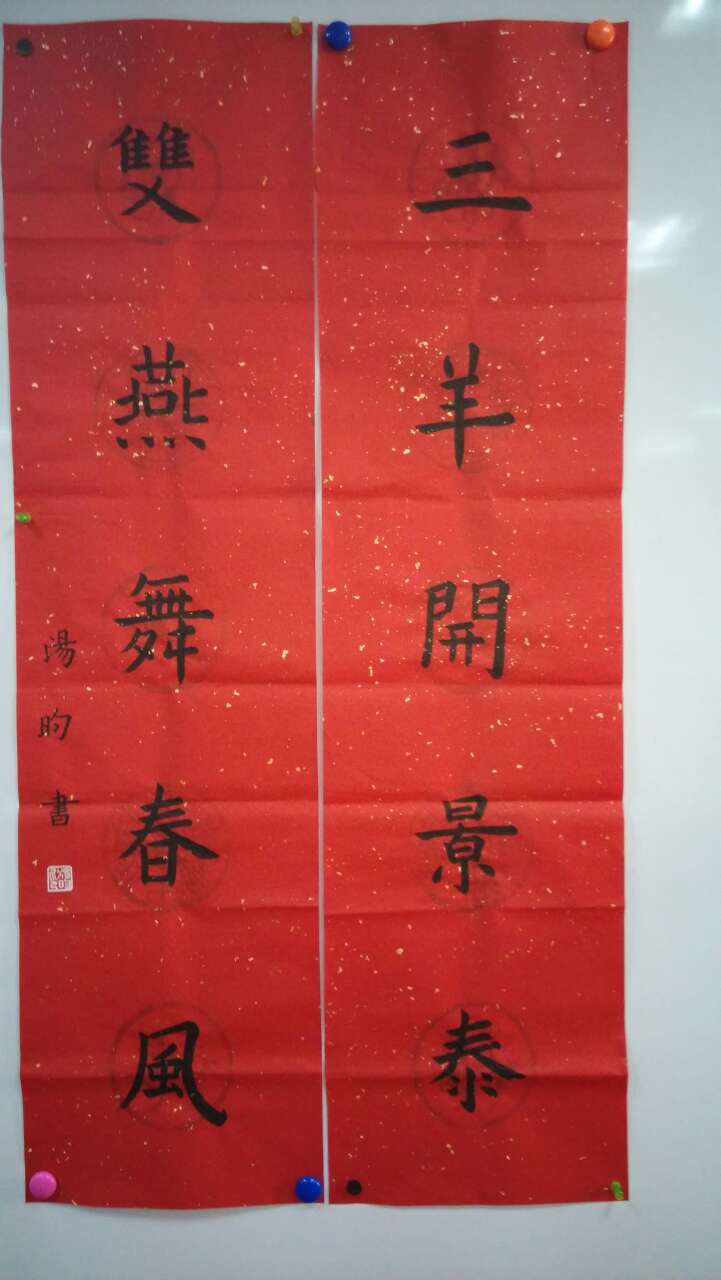 三羊開景泰
雙燕舞春風
湯昀書